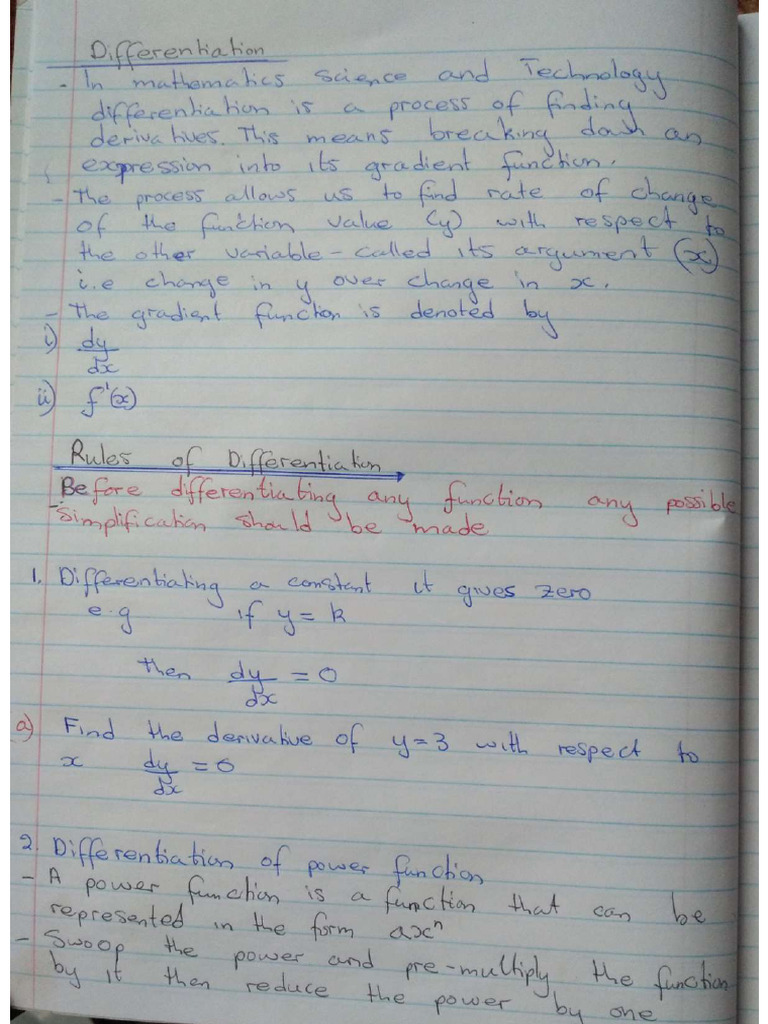 Differentiation
- In mathematics Science and Technology
differentiation is a process of finding
derivatives. This means breaking down an
expression into its gradient function.
- The process allows us to find rate of change
of the function value (y) with respect to
the other variable - called its argument (x)
i.e change in y over change in x.
- The gradient function is denoted by
i) dy/dx
ii) f'(x)
Rules of Differentiation
Before differentiating any function any possible
- simplification should be made
1. Differentiating a constant it gives zero
e.g if y = k
then dy/dx = 0
a) Find the derivative of y=3 with respect to
x dy/dx = 0
2. Differentiation of power function
- A power function is a function that can be
represented in the form axⁿ
- Swoop the power and pre-multiply the function
by it then reduce the power by one